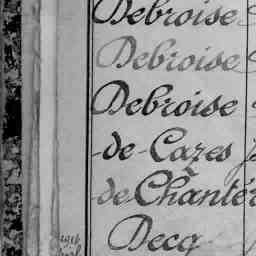 Debroise
Debroise
Debroise
-de-Cazes
-de Chantér
Decq